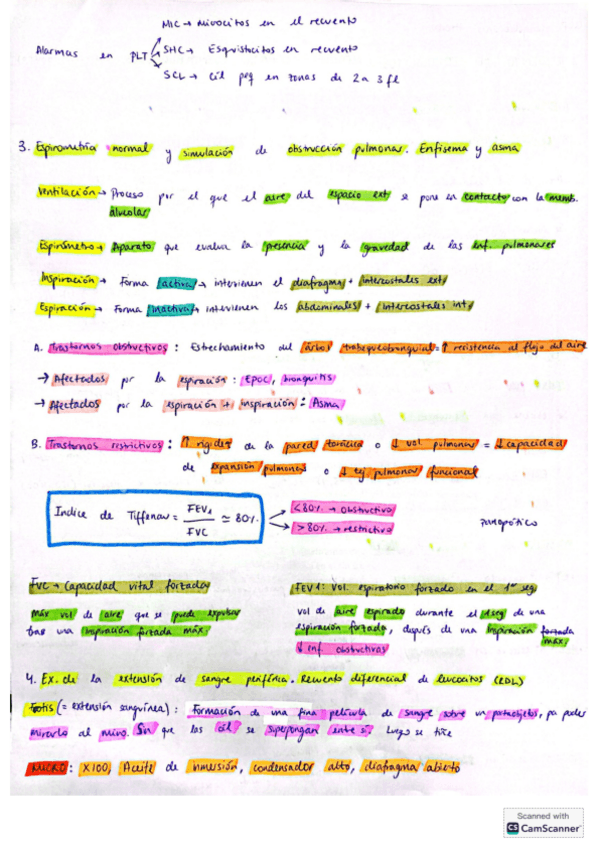 MIC → Microcitos en el recuento
Alarmas en PLT SHC → Esquistocitos en recuento
SCL → cél peq en zonas de 2 a 3 fl
3. Espirometría normal y simulación de obstrucción pulmonar. Enfisema y asma
Ventilación → Proceso por el que el aire del espacio ext se pone en contacto con la memb.
alveolar
Espirómetro → Aparato que evalua la presencia y la gravedad de las enf. pulmonares
Inspiración → Forma activa → intervienen el diafragma + intercostales ext
Espiración → Forma inactiva → intervienen los abdominales + intercostales int
A. Trastornos obstructivos: Estrechamiento del árbol traqueobronquial = ↑ resistencia al flujo del aire
→ Afectados por la espiración: EPOC, bronquitis
→ Afectados por la espiración + inspiración: Asma
B. Trastornos restrictivos: ↑ rigidez de la pared torácica o ↓ vol pulmonar = ↓ capacidad
de expansión pulmonar o ↓ tej. pulmonar funcional
Indice de Tiffenau = FEV1 / FVC ≃ 80%.
<80% → obstructivo
>80% → restrictivo
panóptico
FVC → Capacidad vital forzada
Máx vol de aire que se puede expulsar
tras una inspiración forzada máx
FEV1: Vol. espiratorio forzado en el 1er seg
vol de aire espirado durante el 1seg de una
espiración forzada, después de una inspiración forzada
máx.
↓ enf. obstructivas
4. Ex. de la extensión de sangre periférica. Recuento diferencial de leucocitos (RDL)
Frotis (= extensión sanguínea): Formación de una fina película de sangre sobre un portaobjetos, pa poder
mirarlo al micro. Sin que las cél se superpongan entre sí. Luego se tiñe
MICRO: X100, Aceite de inmersión, condensador alto, diafragma abierto
Scanned with
CS CamScanner